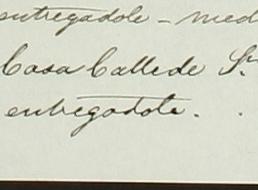 entregadole - med
Casa Calle de Sn.
entregadole.